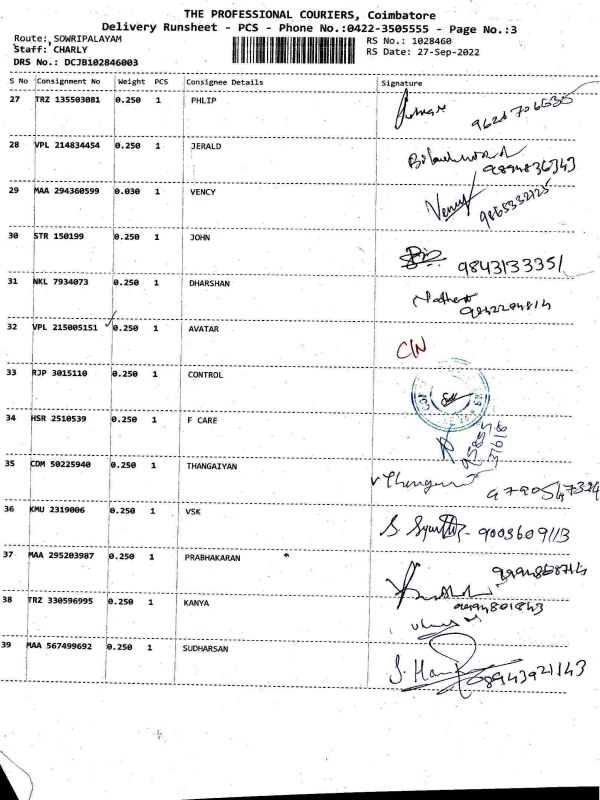 THE PROFESSIONAL COURIERS, Coimbatore
Delivery Runsheet - PCS - Phone No.:0422-3505555 - Page No.:3
Route: SOWRIPALAYAM RS No.: 1028460
Staff: CHARLY RS Date: 27-Sep-2022
DRS No.: DCJB102846003
S No Consignment No Weight PCS Consignee Details Signature
27 TRZ 135503081 0.250 1 PHLIP
28 VPL 214834454 0.250 1 JERALD
9894836343
29 MAA 294360599 0.030 1 VENCY Vency
9865332125
30 STR 150199 0.250 1 JOHN
9843133351
31 NKL 7934073 0.250 1 DHARSHAN
32 VPL 215005151 0.250 1 AVATAR
C/N
33 RJP 3015110 0.250 1 CONTROL
34 HSR 2510539 0.250 1 F CARE
35 CDM 50225940 0.250 1 THANGAIYAN
36 KMU 2319006 0.250 1 VSK
9003609113
37 MAA 295203987 0.250 1 PRABHAKARAN
38 TRZ 330596995 0.250 1 KANYA
39 MAA 567499692 0.250 1 SUDHARSAN
08943921143